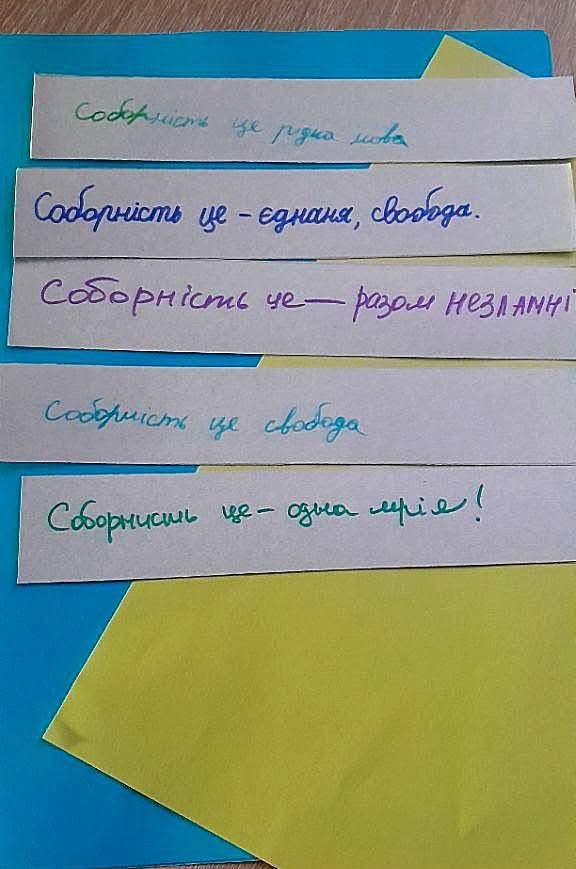 Соборність це рідна мова
Соборність це - єднаня, свобода.
Соборність це — разом НЕЗЛАМНІ
Соборність це свобода
Соборнисть це - одна мрія!